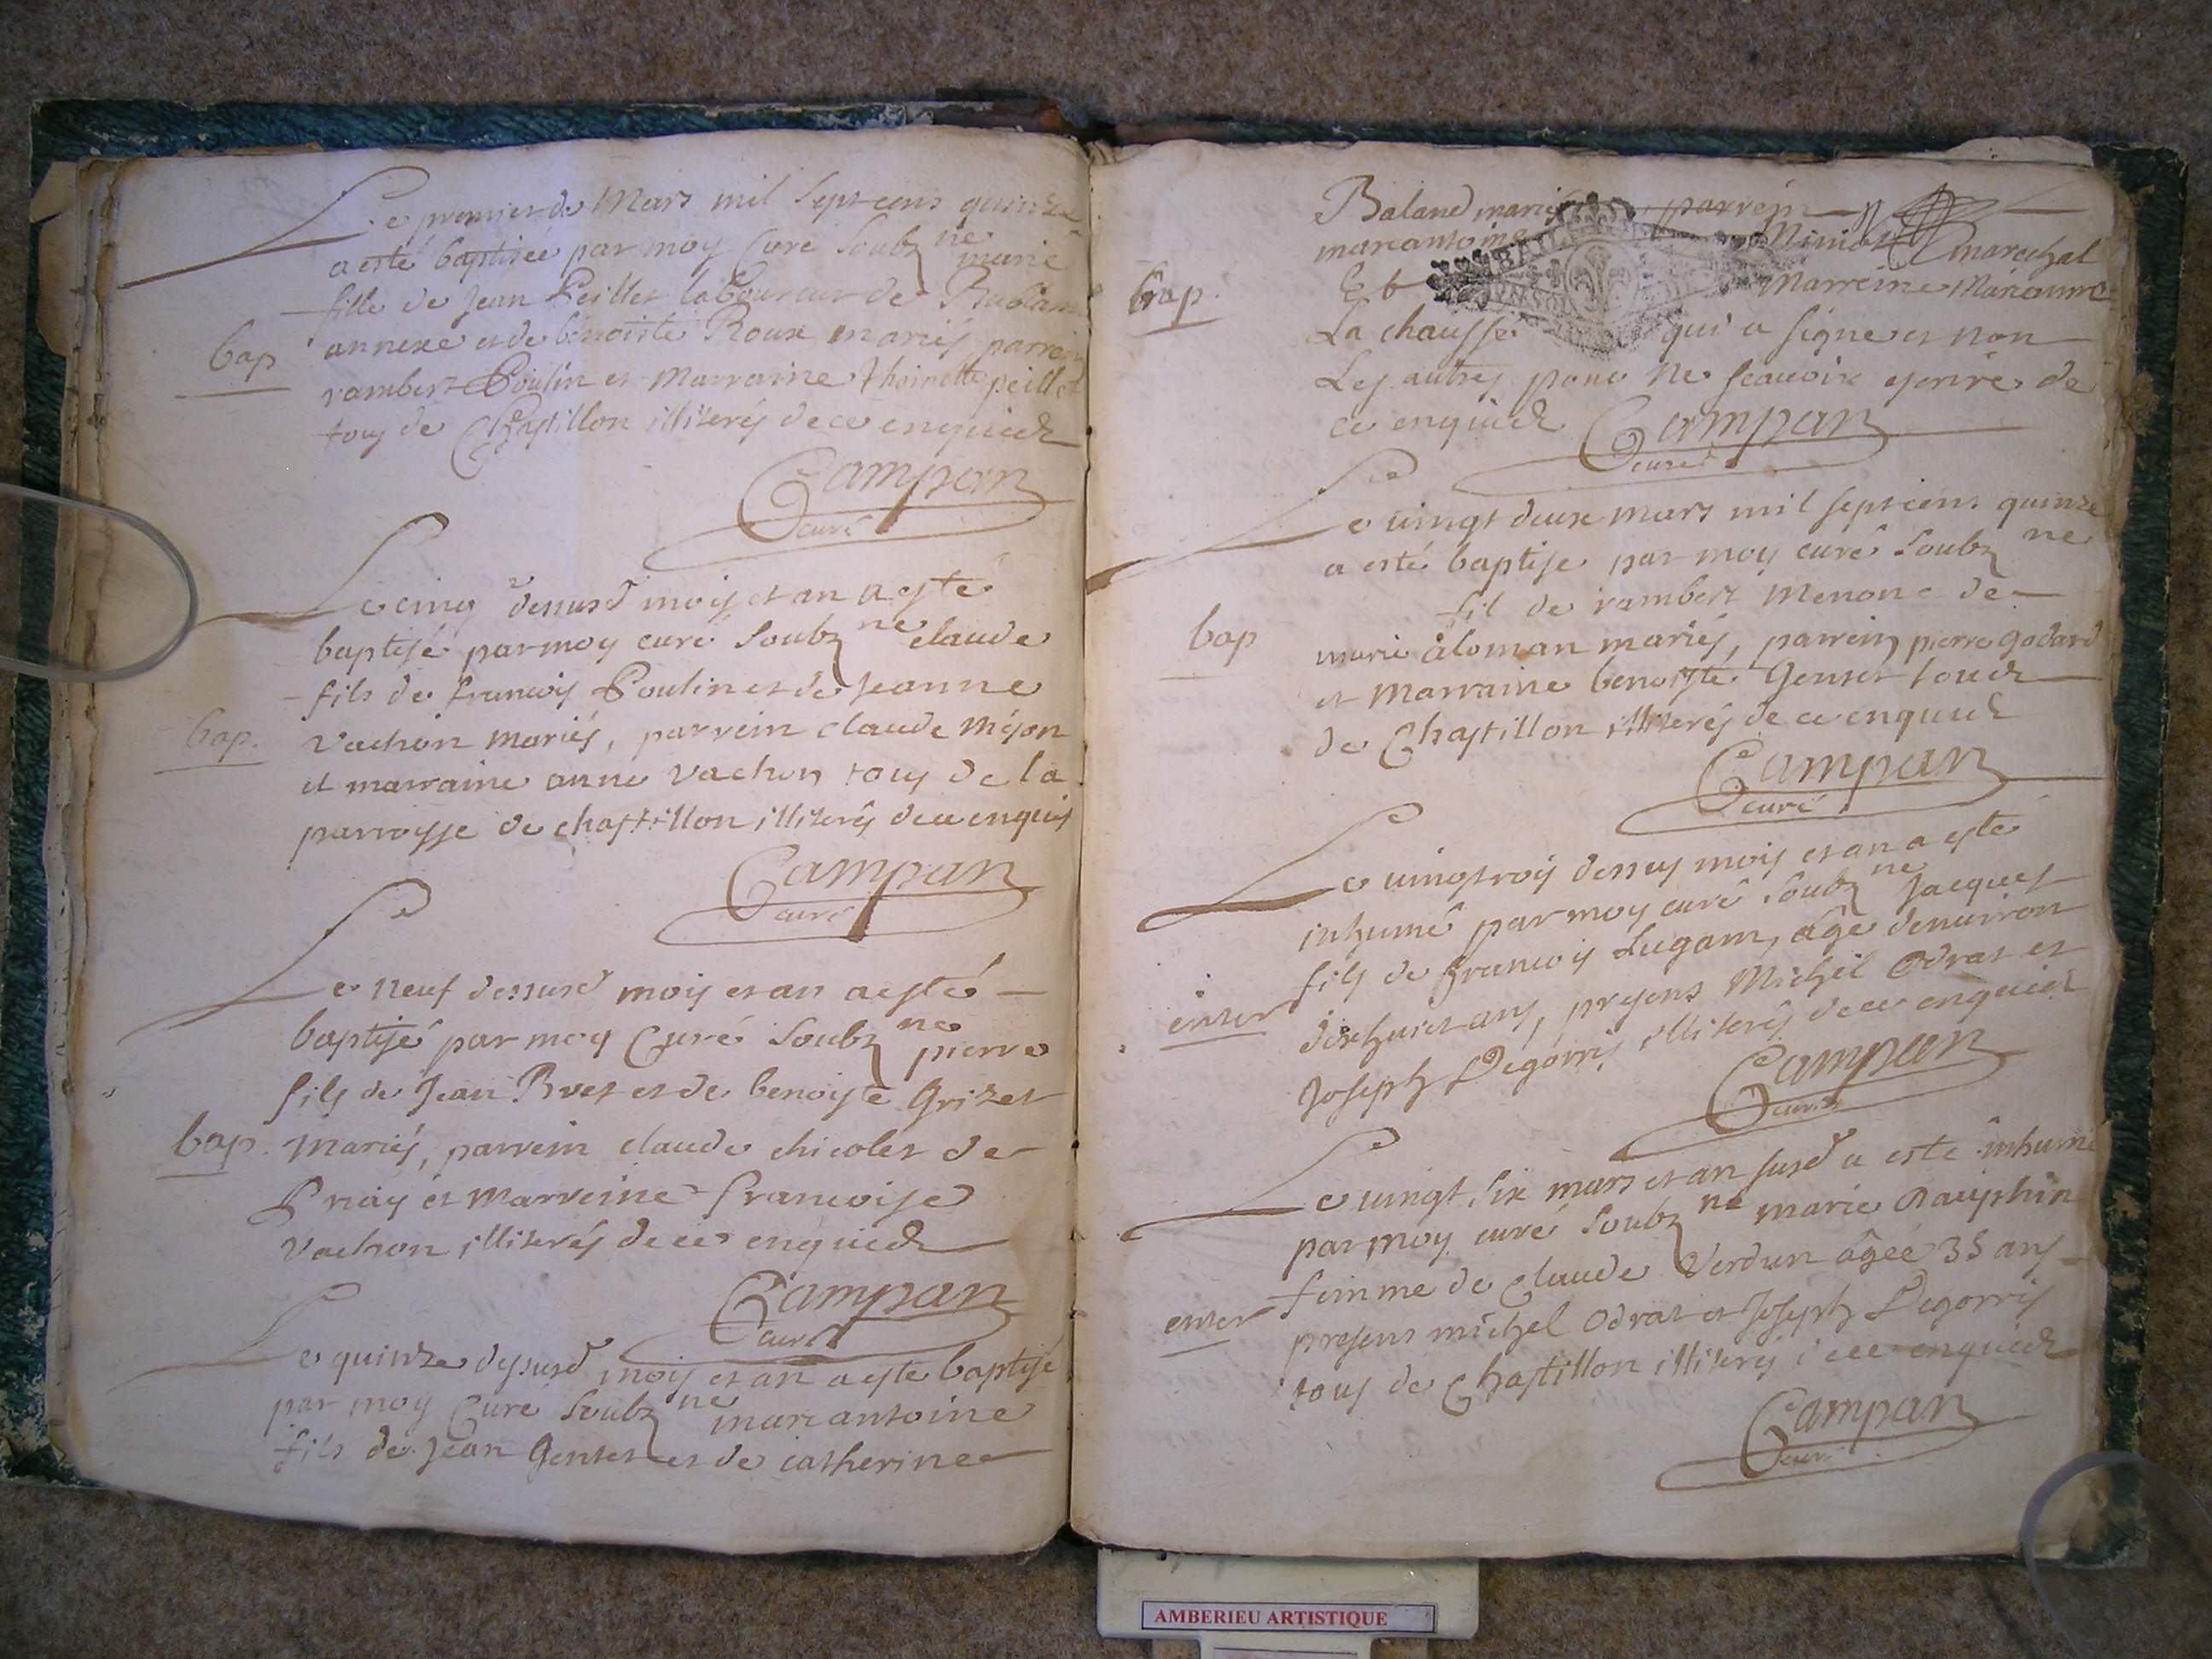 Le premier de Mars mil sept cens quinze
a esté baptisée par moy Curé soubz ne marie
fille de Jean Peillet laboureur de
annexe et de benoiste Roux mariés parrein
rambert Poulin et Marraine thoinette peillet
tous de Chastillon illiterés de ce enquicz
bap
Campan
curé
Le cinq dessusd mois et an a esté
baptisé par moy curé soubz ne claude
fils de francois Poulin et de Jeanne
Vachon mariés, parrein claude Mejon
bap.
et marraine anne Vachon tous de la
parroysse de chastillon illiterés de ce enquis
Campan
curé
Le neuf dessusd mois et an a esté
baptisé par moy Curé soubz ne pierre
fils de Jean Bret et de benoyte Grizet
bap. mariés, parrein claude chicolet de
Priay et Marreine francoise
Vachon illiterés de ce enquicz
Campan
curé
Le quinze dessusd mois et an a esté baptisé
par moy Curé soubz ne marcantoine
fils de Jean Genset et de catherine
Baland mariés parrein
marcantoine marechal
bap.
Et Marreine Marianne
La chaussé qui a signe et non
Les autres pour ne scavoir escrire de
ce enquicz Campan
curé
Le vingt deux mars mil sept cens quinze
a esté baptise par moy curé soubz ne
fil de rambert Menon e de
bap
marie aloman mariés, parrein pierre godard
et marraine benoyte Genset touz
de Chastillon illiterés de ce enquicz
Campan
curé
Le vingtrois dessus mois et an a esté
inhumé par moy curé soubz ne Jacques
fils de francois Lugam, âge denviron
enter
dixhuit ans, presens Michel Odrat et
Joseph Degorris illiterés de ce enquicz
Campan
curé
Le vingt six mars et an susd a este inhumé
par moy curé soubz ne marie Dauphin
femme de Claude Verdun âgée 35 ans
enter
presens michel Odrat et Joseph Degorris
tous de Chastillon illiterés de ce enquicz
Campan
curé
AMBERIEU ARTISTIQUE